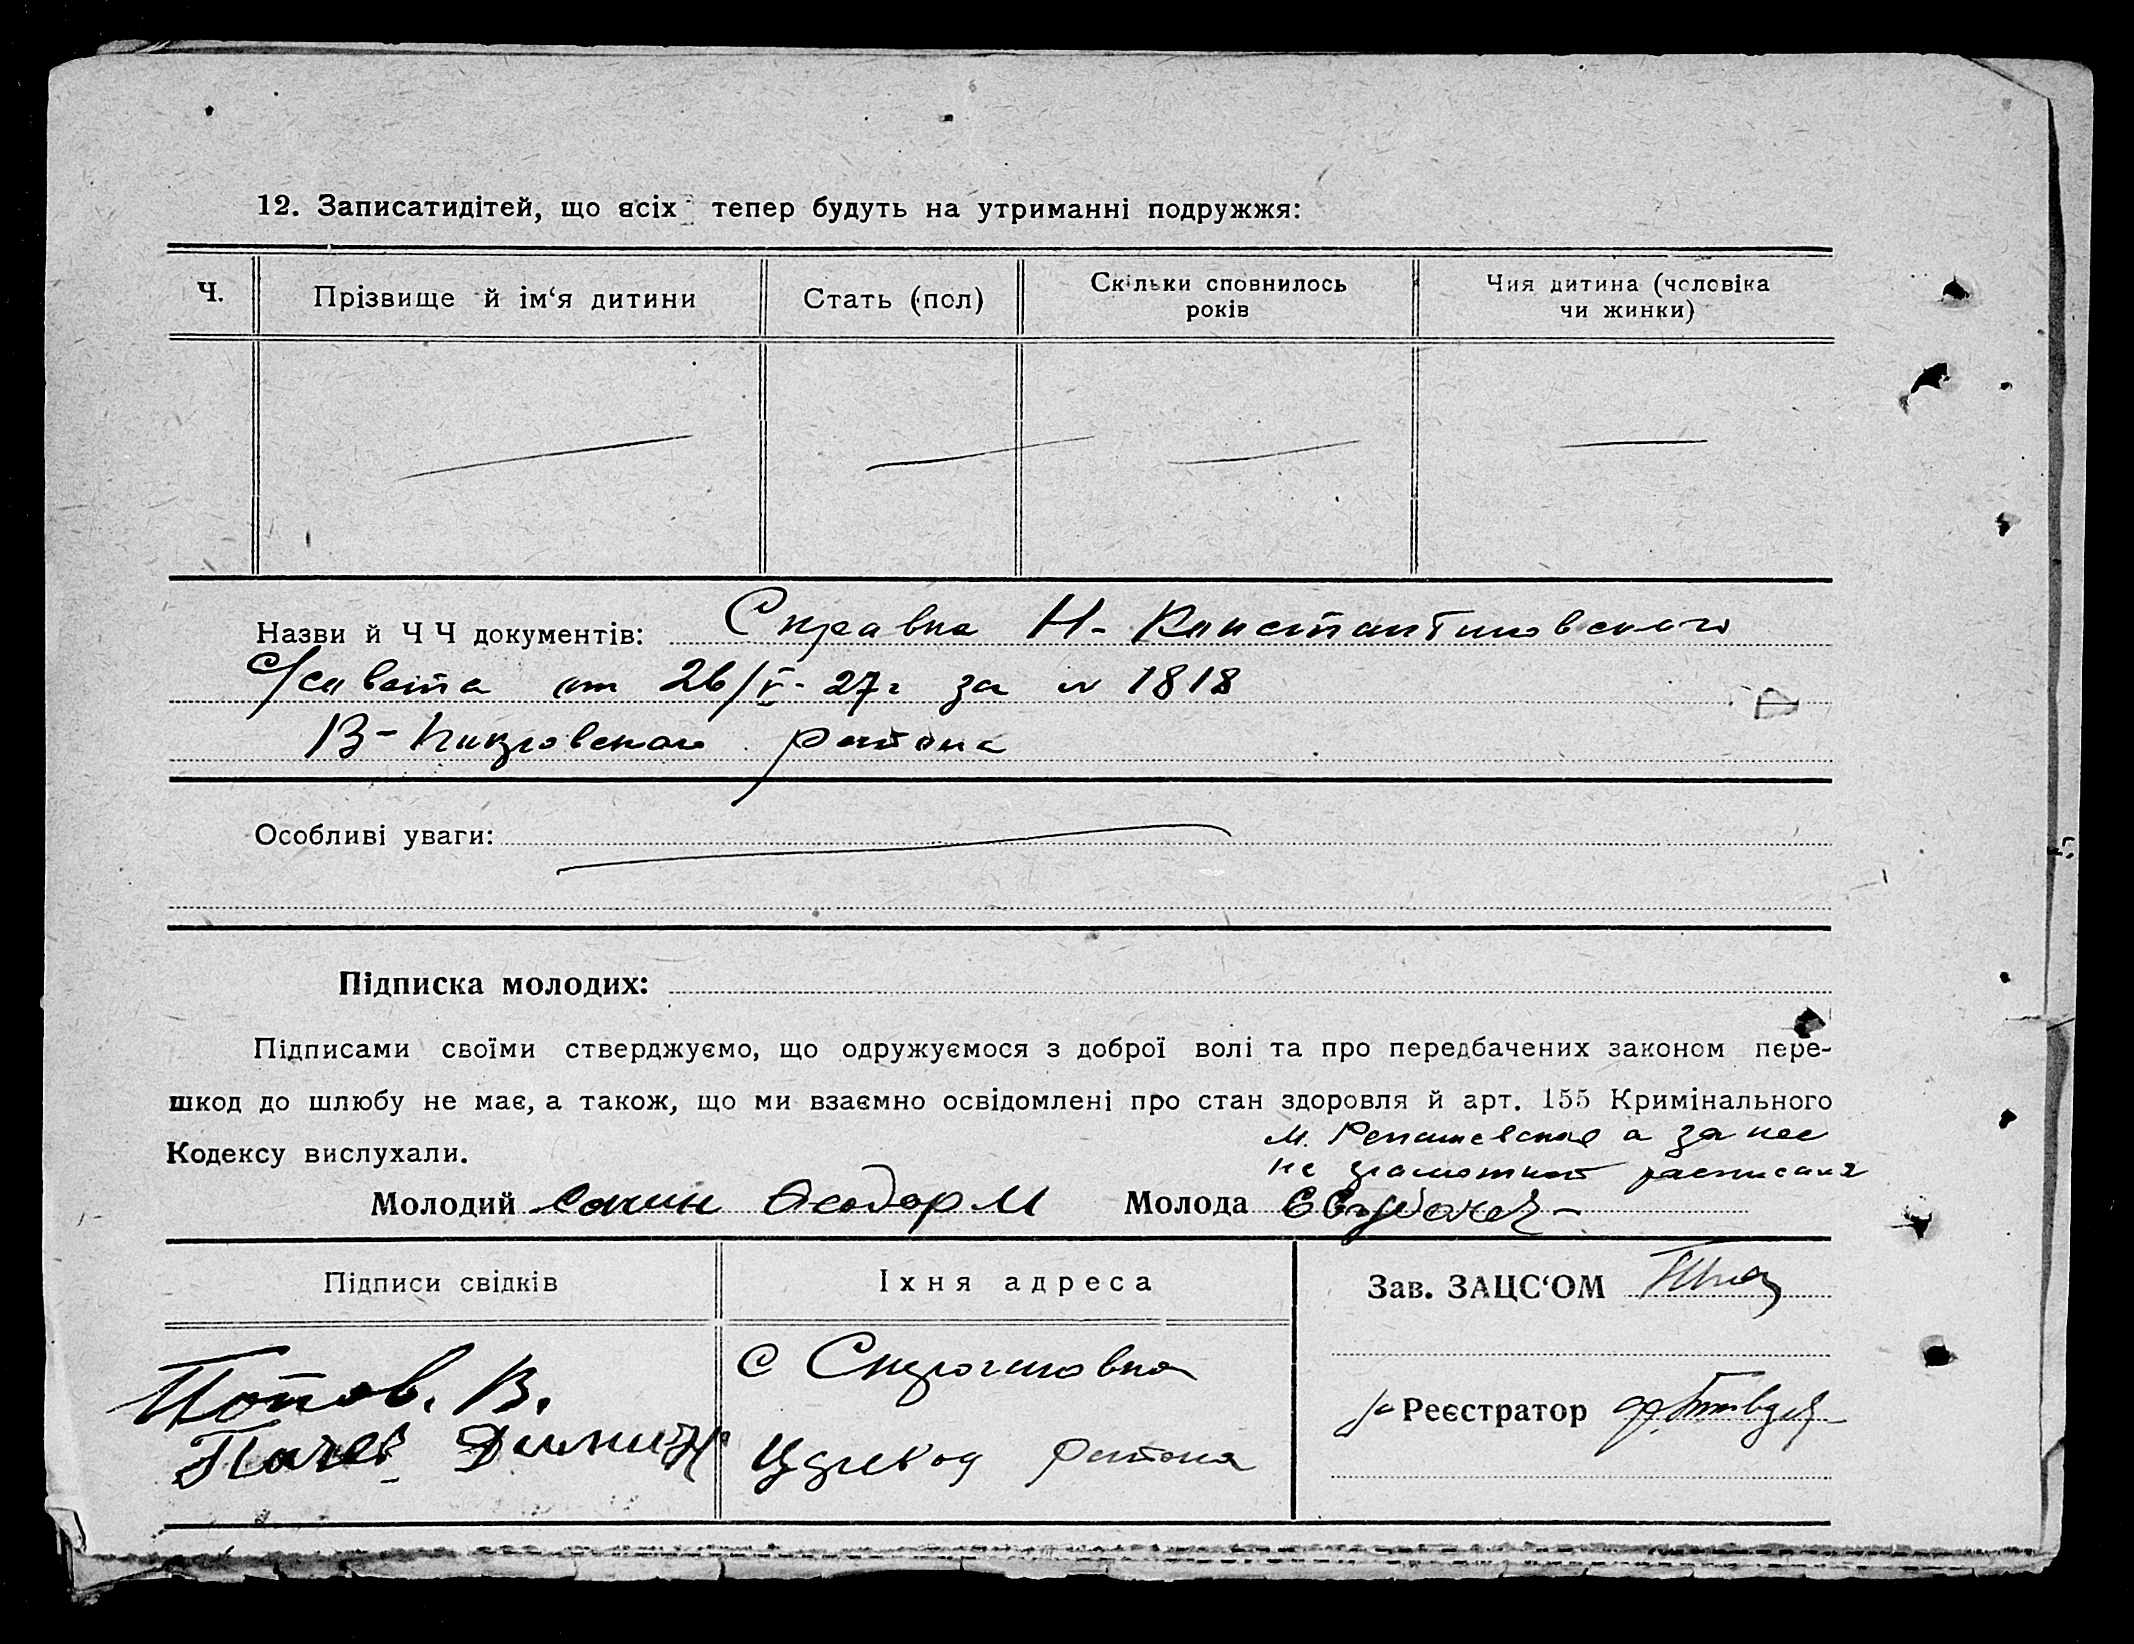 12. Записатидітей, що всіх тепер будуть на утриманні подружжя:
Ч. Прізвище й ім‘я дитини Стать (пол) Скільки сповнилось років Чия дитина (чоловіка чи жинки)
Назви й Ч Ч документів: Справка Н- Константиновского
с/совета от 26/V- 27г за № 1818
В- района
Особливі уваги:
Підписка молодих:
Підписами своїми стверджуємо, що одружуємося з доброї волі та про передбачених законом пере-
шкод до шлюбу не має, а також, що ми взаємно освідомлені про стан здоровля й арт. 155 Кримінального
Кодексу вислухали.
М. а за нее
не грамотной
Молодий Сокин Феодор М Молода
Підписи свідків Їхня адреса Зав. ЗАЦС‘ОМ
Попов. В. с
района
Реєстратор